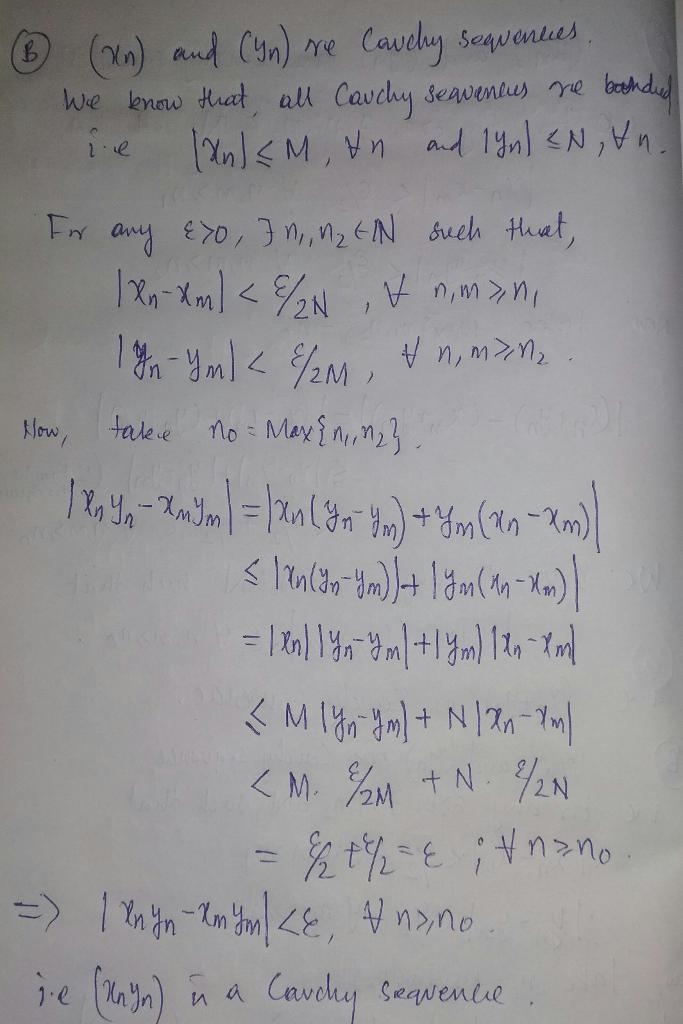 Ⓑ (xn) and (yn) re Cauchy sequences.
We know that, all Cauchy sequences re bounded
i.e |xn| ≤ M, ∀n and |yn| ≤ N, ∀n.
For any ε>0, ∃ n₁, n₂ ∈ ℕ such that,
|xn-xm| < ε/2N , ∀ n,m ≥ n₁
|yn-ym| < ε/2M , ∀ n,m ≥ n₂ .
Now, take n₀ = Max{n₁,n₂}.
|xnyn - xmym| = |xn(yn-ym) + ym(xn-xm)|
≤ |xn(yn-ym)| + |ym(xn-xm)|
= |xn||yn-ym| + |ym||xn-xm|
≤ M|yn-ym| + N|xn-xm|
< M. ε/2M + N. ε/2N
= ε/2 + ε/2 = ε ; ∀ n ≥ n₀.
=> |xnyn - xmym| < ε, ∀ n ≥ n₀.
i.e (xnyn) is a Cauchy sequence.